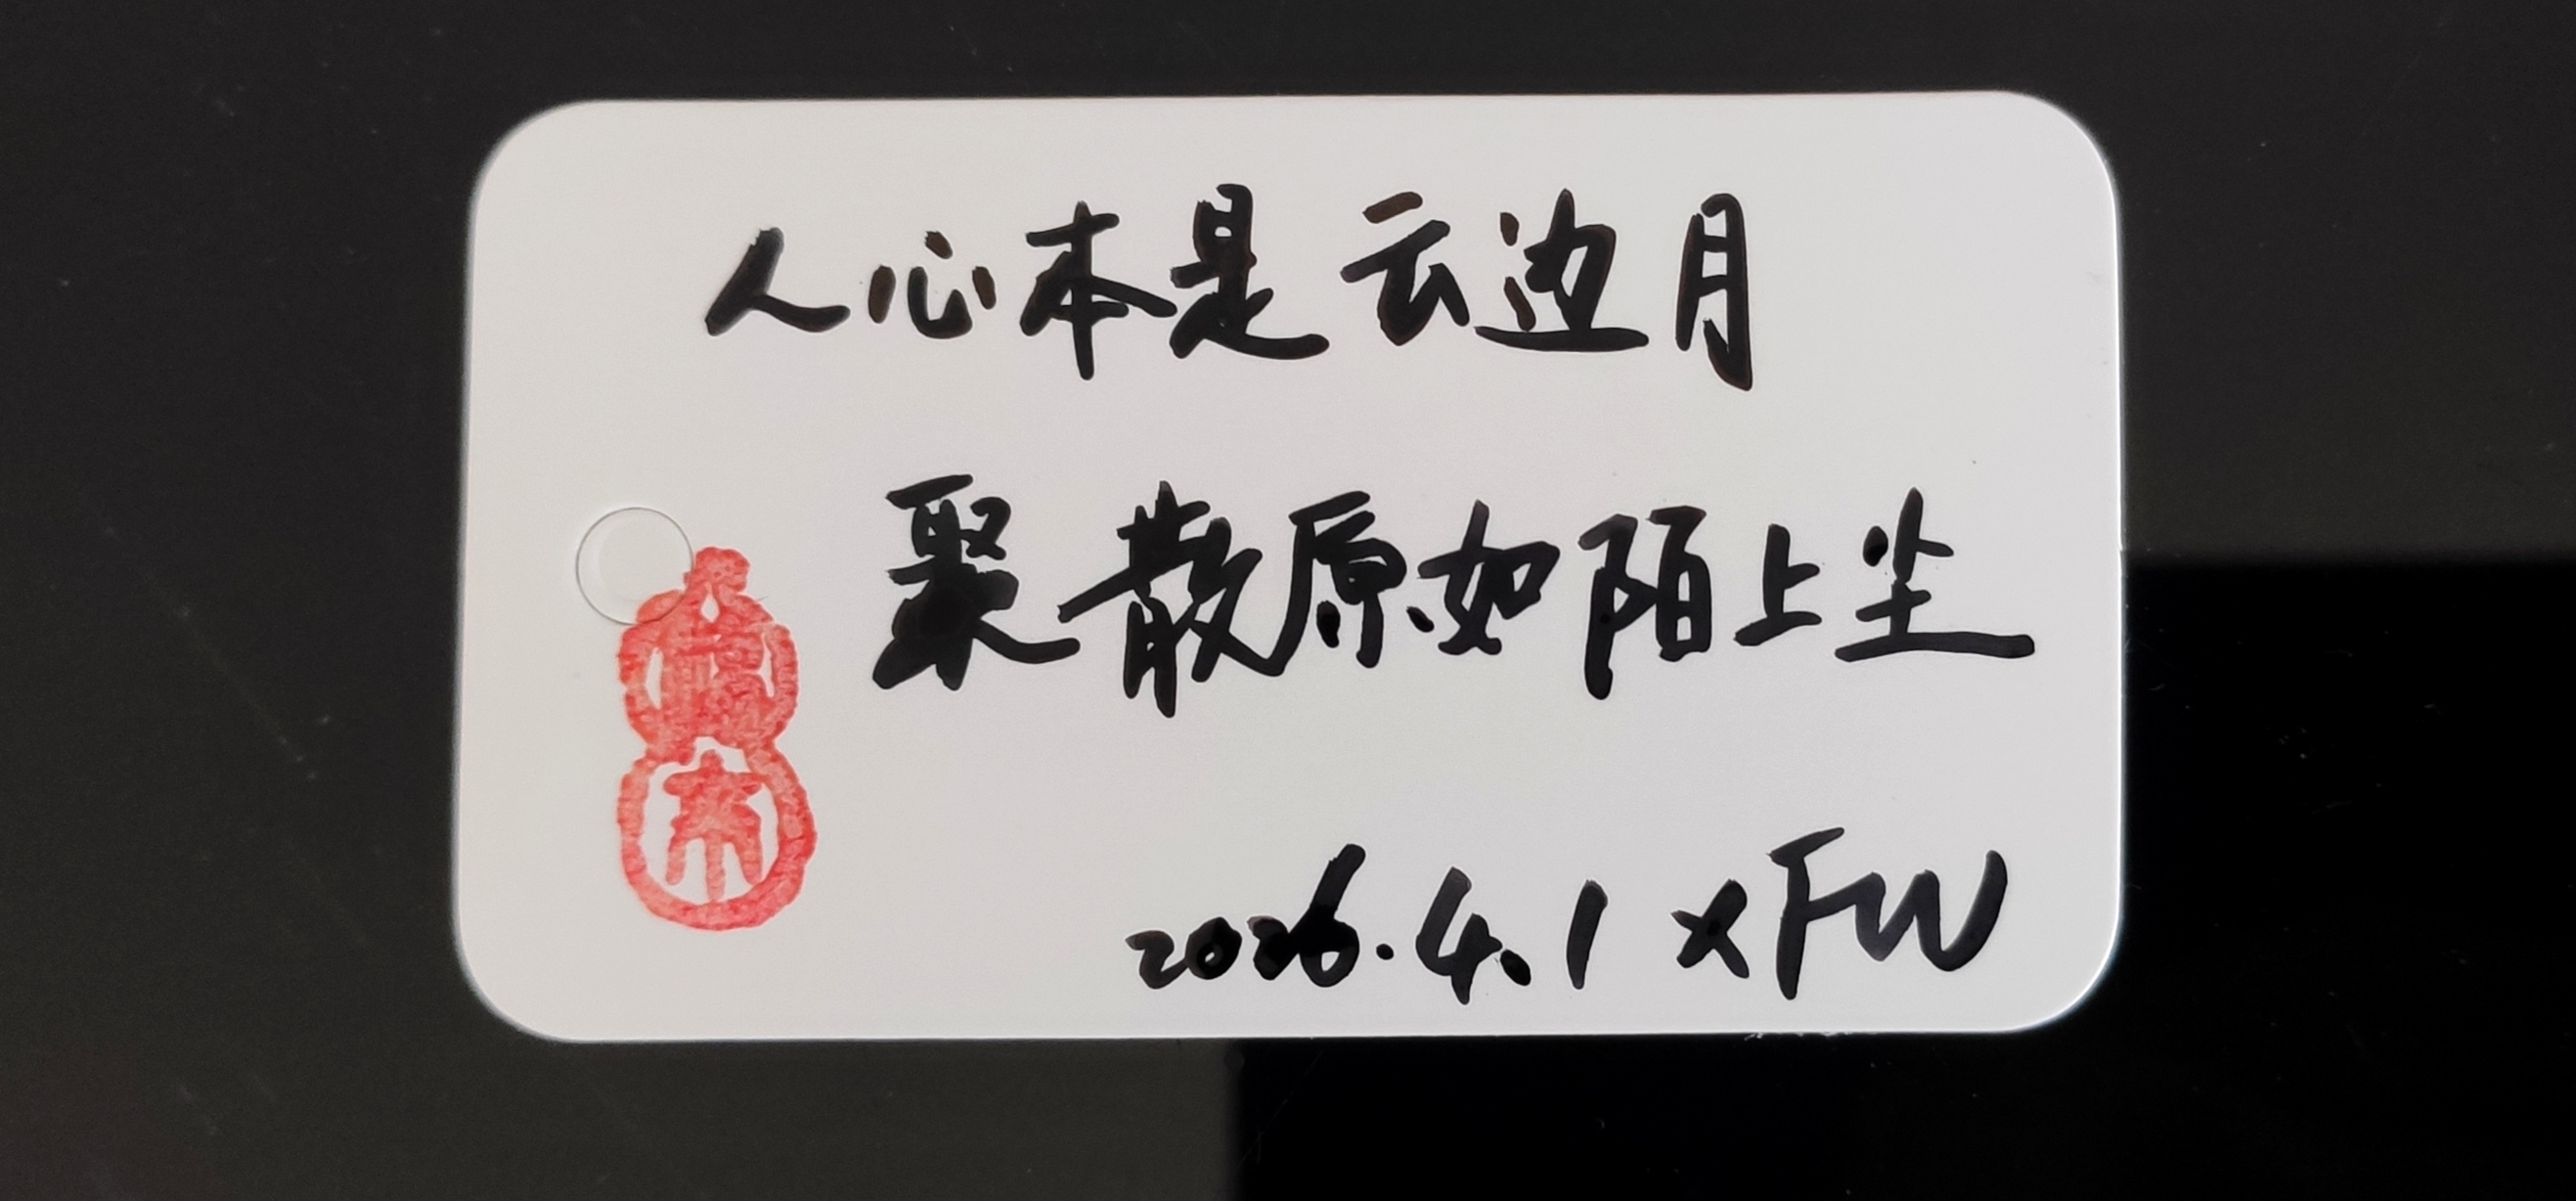 人心本是云边月
聚散原如陌上尘
2026.4.1 XFW